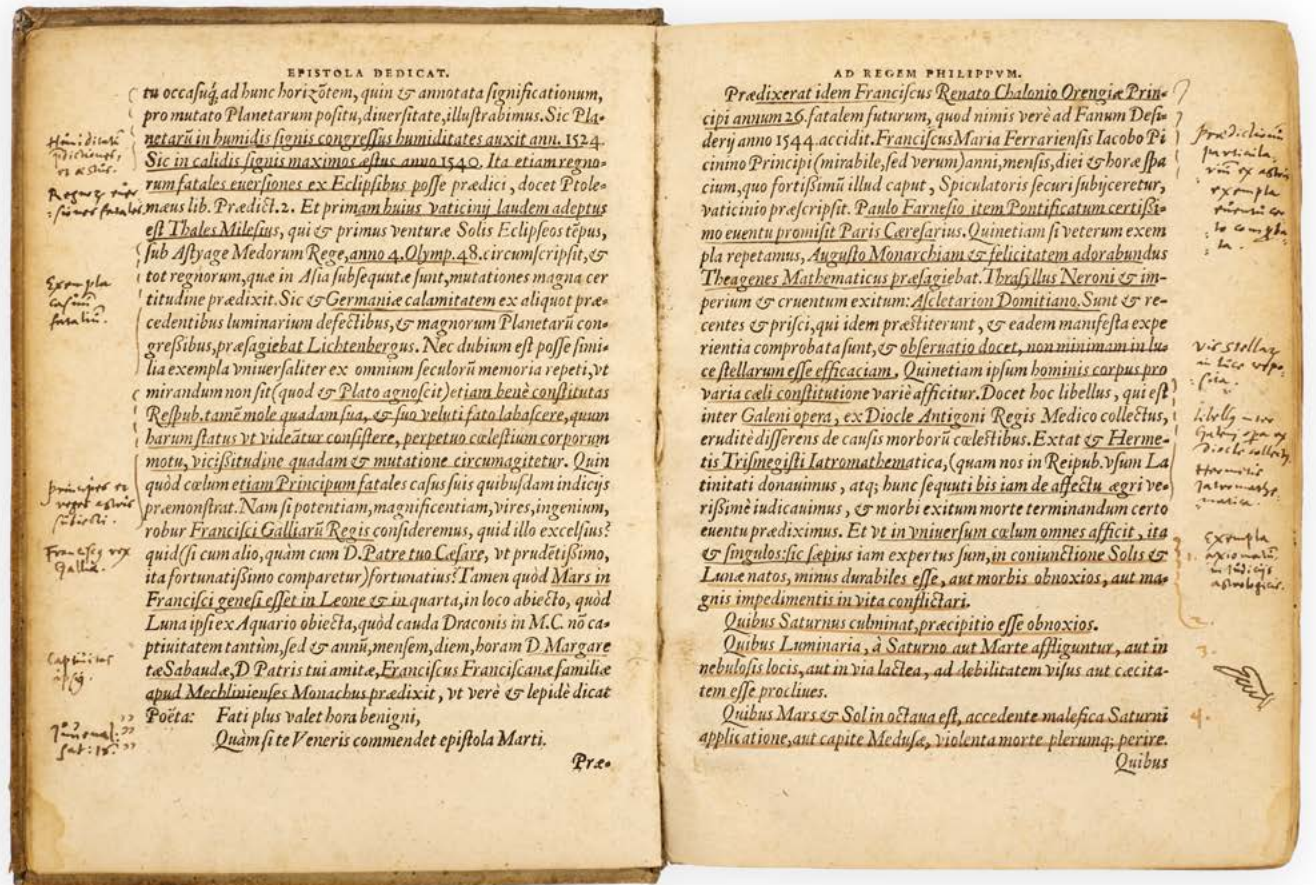 EPISTOLA DEDICAT.
tu occasuq́; ad hunc horizõtem, quin & annotata significationum,
pro mutato Planetarum positu, diuersitate, illustrabimus. Sic Pla-
netarũ in humidis signis congressus humiditates auxit ann. 1524.
Sic in calidis signis maximos æstus anno 1540. Ita etiam regno-
rum fatales euersiones ex Eclipsibus posse prædici, docet Ptole-
mæus lib. Prædict. 2. Et primam huius vaticinij laudem adeptus
est Thales Milesius, qui & primus venturæ Solis Eclipseos tẽpus,
sub Astyage Medorum Rege, anno 4. Olymp. 48. circumscripsit, &
tot regnorum, quæ in Asia subsequutæ sunt, mutationes magna cer
titudine prædixit. Sic & Germaniæ calamitatem ex aliquot præ-
cedentibus luminarium defectibus, & magnorum Planetarũ con-
greßibus, præsagiebat Lichtenbergus. Nec dubium est posse simi-
lia exempla vniuersaliter ex omnium seculorũ memoria repeti, vt
mirandum non sit (quod & Plato agnoscit) etiam benè constitutas
Respub. tamẽ mole quadam sua, & suo veluti fato labascere, quum
harum status vt videãtur consistere, perpetuo cœlestium corporum
motu, vicißitudine quadam & mutatione circumagitetur. Quin
quòd cœlum etiam Principum fatales casus suis quibusdam indicijs
præmonstrat. Nam si potentiam, magnificentiam, vires, ingenium,
robur Francisci Galliarũ Regis consideremus, quid illo excelsius?
quid (si cum alio, quàm cum D. Patre tuo Cæsare, vt prudẽtißimo,
ita fortunatißimo comparetur) fortunatius? Tamen quòd Mars in
Francisci genesi esset in Leone & in quarta, in loco abiecto, quòd
Luna ipsi ex Aquario obiecta, quòd cauda Draconis in M.C. nõ ca-
ptiuitatem tantùm, sed & annũ, mensem, diem, horam D. Margare
tæ Sabaudæ, D Patris tui amitæ, Franciscus Franciscanæ familiæ
apud Mechlinienses Monachus prædixit, vt verè & lepidè dicat
Poëta: Fati plus valet hora benigni,
Quàm si te Veneris commendet epistola Marti.
Præ-
Exempla
casuum
fataliũ.
principes et
reges astris
subiecti.
Franciscq rex
Galliæ.
AD REGEM PHILIPPVM.
Prædixerat idem Franciscus Renato Chalonio Orengiæ Prin-
cipi annum 26. fatalem futurum, quod nimis verè ad Fanum Desi-
derij anno 1544. accidit. Franciscus Maria Ferrariensis Iacobo Pi
cinino Principi (mirabile, sed verum) anni, mensis, diei & horæ spa
cium, quo fortißimũ illud caput, Spiculatoris securi subijceretur,
vaticinio præscripsit. Paulo Farnesio item Pontificatum certißi-
mo euentu promisit Paris Cæresarius. Quinetiam si veterum exem
pla repetamus, Augusto Monarchiam & felicitatem adorabundus
Theagenes Mathematicus præsagiebat. Thrasyllus Neroni & im-
perium & cruentum exitum: Ascletarion Domitiano. Sunt & re-
centes & prisci, qui idem præstiterunt, & eadem manifesta expe
rientia comprobata sunt, & obseruatio docet, non minimam in lu-
ce stellarum esse efficaciam. Quinetiam ipsum hominis corpus pro
varia cæli constitutione variè afficitur. Docet hoc libellus, qui est
inter Galeni opera, ex Diocle Antigoni Regis Medico collectus,
eruditè disserens de causis morborũ cœlestibus. Extat & Herme-
tis Trismegisti Iatromathematica, (quam nos in Reipub. vsum La
tinitati donauimus, atq; hunc sequuti bis iam de affectu ægri ve-
rißimè iudicauimus, & morbi exitum morte terminandum certo
euentu prædiximus. Et vt in vniuersum cœlum omnes afficit, ita
& singulos: sic sæpius iam expertus sum, in coniunctione Solis &
Lunæ natos, minus durabiles esse, aut morbis obnoxios, aut ma-
gnis impedimentis in vita conflictari.
Quibus Saturnus culminat, præcipitio esse obnoxios.
Quibus Luminaria, à Saturno aut Marte affliguntur, aut in
nebulosis locis, aut in via lactea, ad debilitatem visus aut cæcita-
tem esse procliues.
Quibus Mars & Sol in octaua est, accedente malefica Saturni
applicatione, aut capite Medusæ, violenta morte plerumq; perire.
Quibus
Exempla
axiomatũ
in iudicijs
astrologicis.
1.
2.
3.
4.